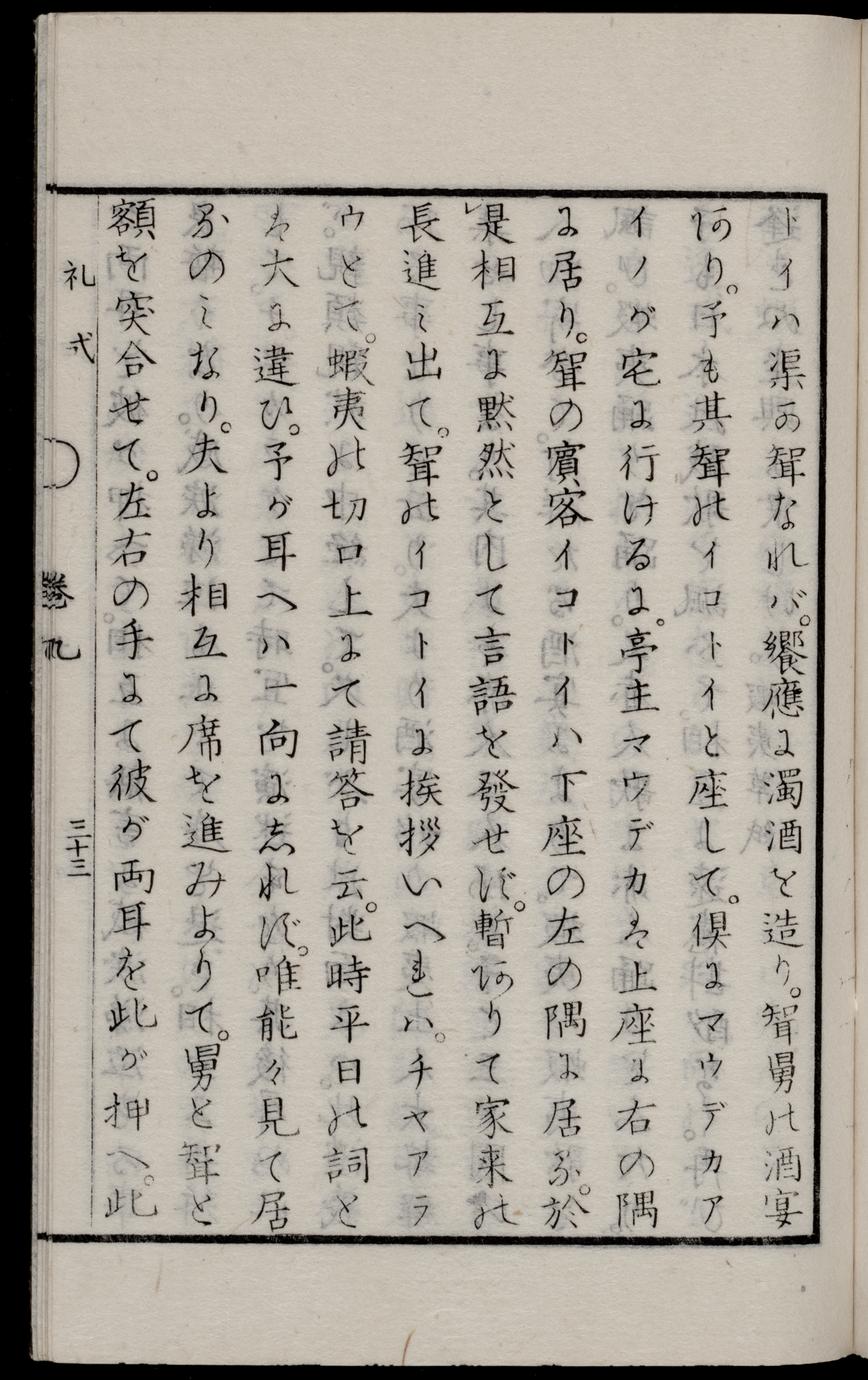 トイハ渠の聟なれバ。饗應に濁酒を造り。聟舅の酒宴
あり。予も其聟のイコトイと座して。倶にマウデカア
イノが宅に行けるに。亭主マウデカは上座に右の隅
に居り。聟の賓客イコトイハ下座の左の隅に居る。於
是相互に黙然として言語を發せず。暫ありて家来の
長進ミ出て。聟のイコトイに挨拶いへれハ。チヤアラ
ウとて。蝦夷の切口上にて請答を云。此時平日の詞と
は大に違ひ。予が耳へハ一向に志れず。唯能々見て居
るのミなり。夫より相互に席を進みよりて。舅と聟と
額を突合せて。左右の手にて彼が両耳を此が押へ。此
礼式 巻九 三十三